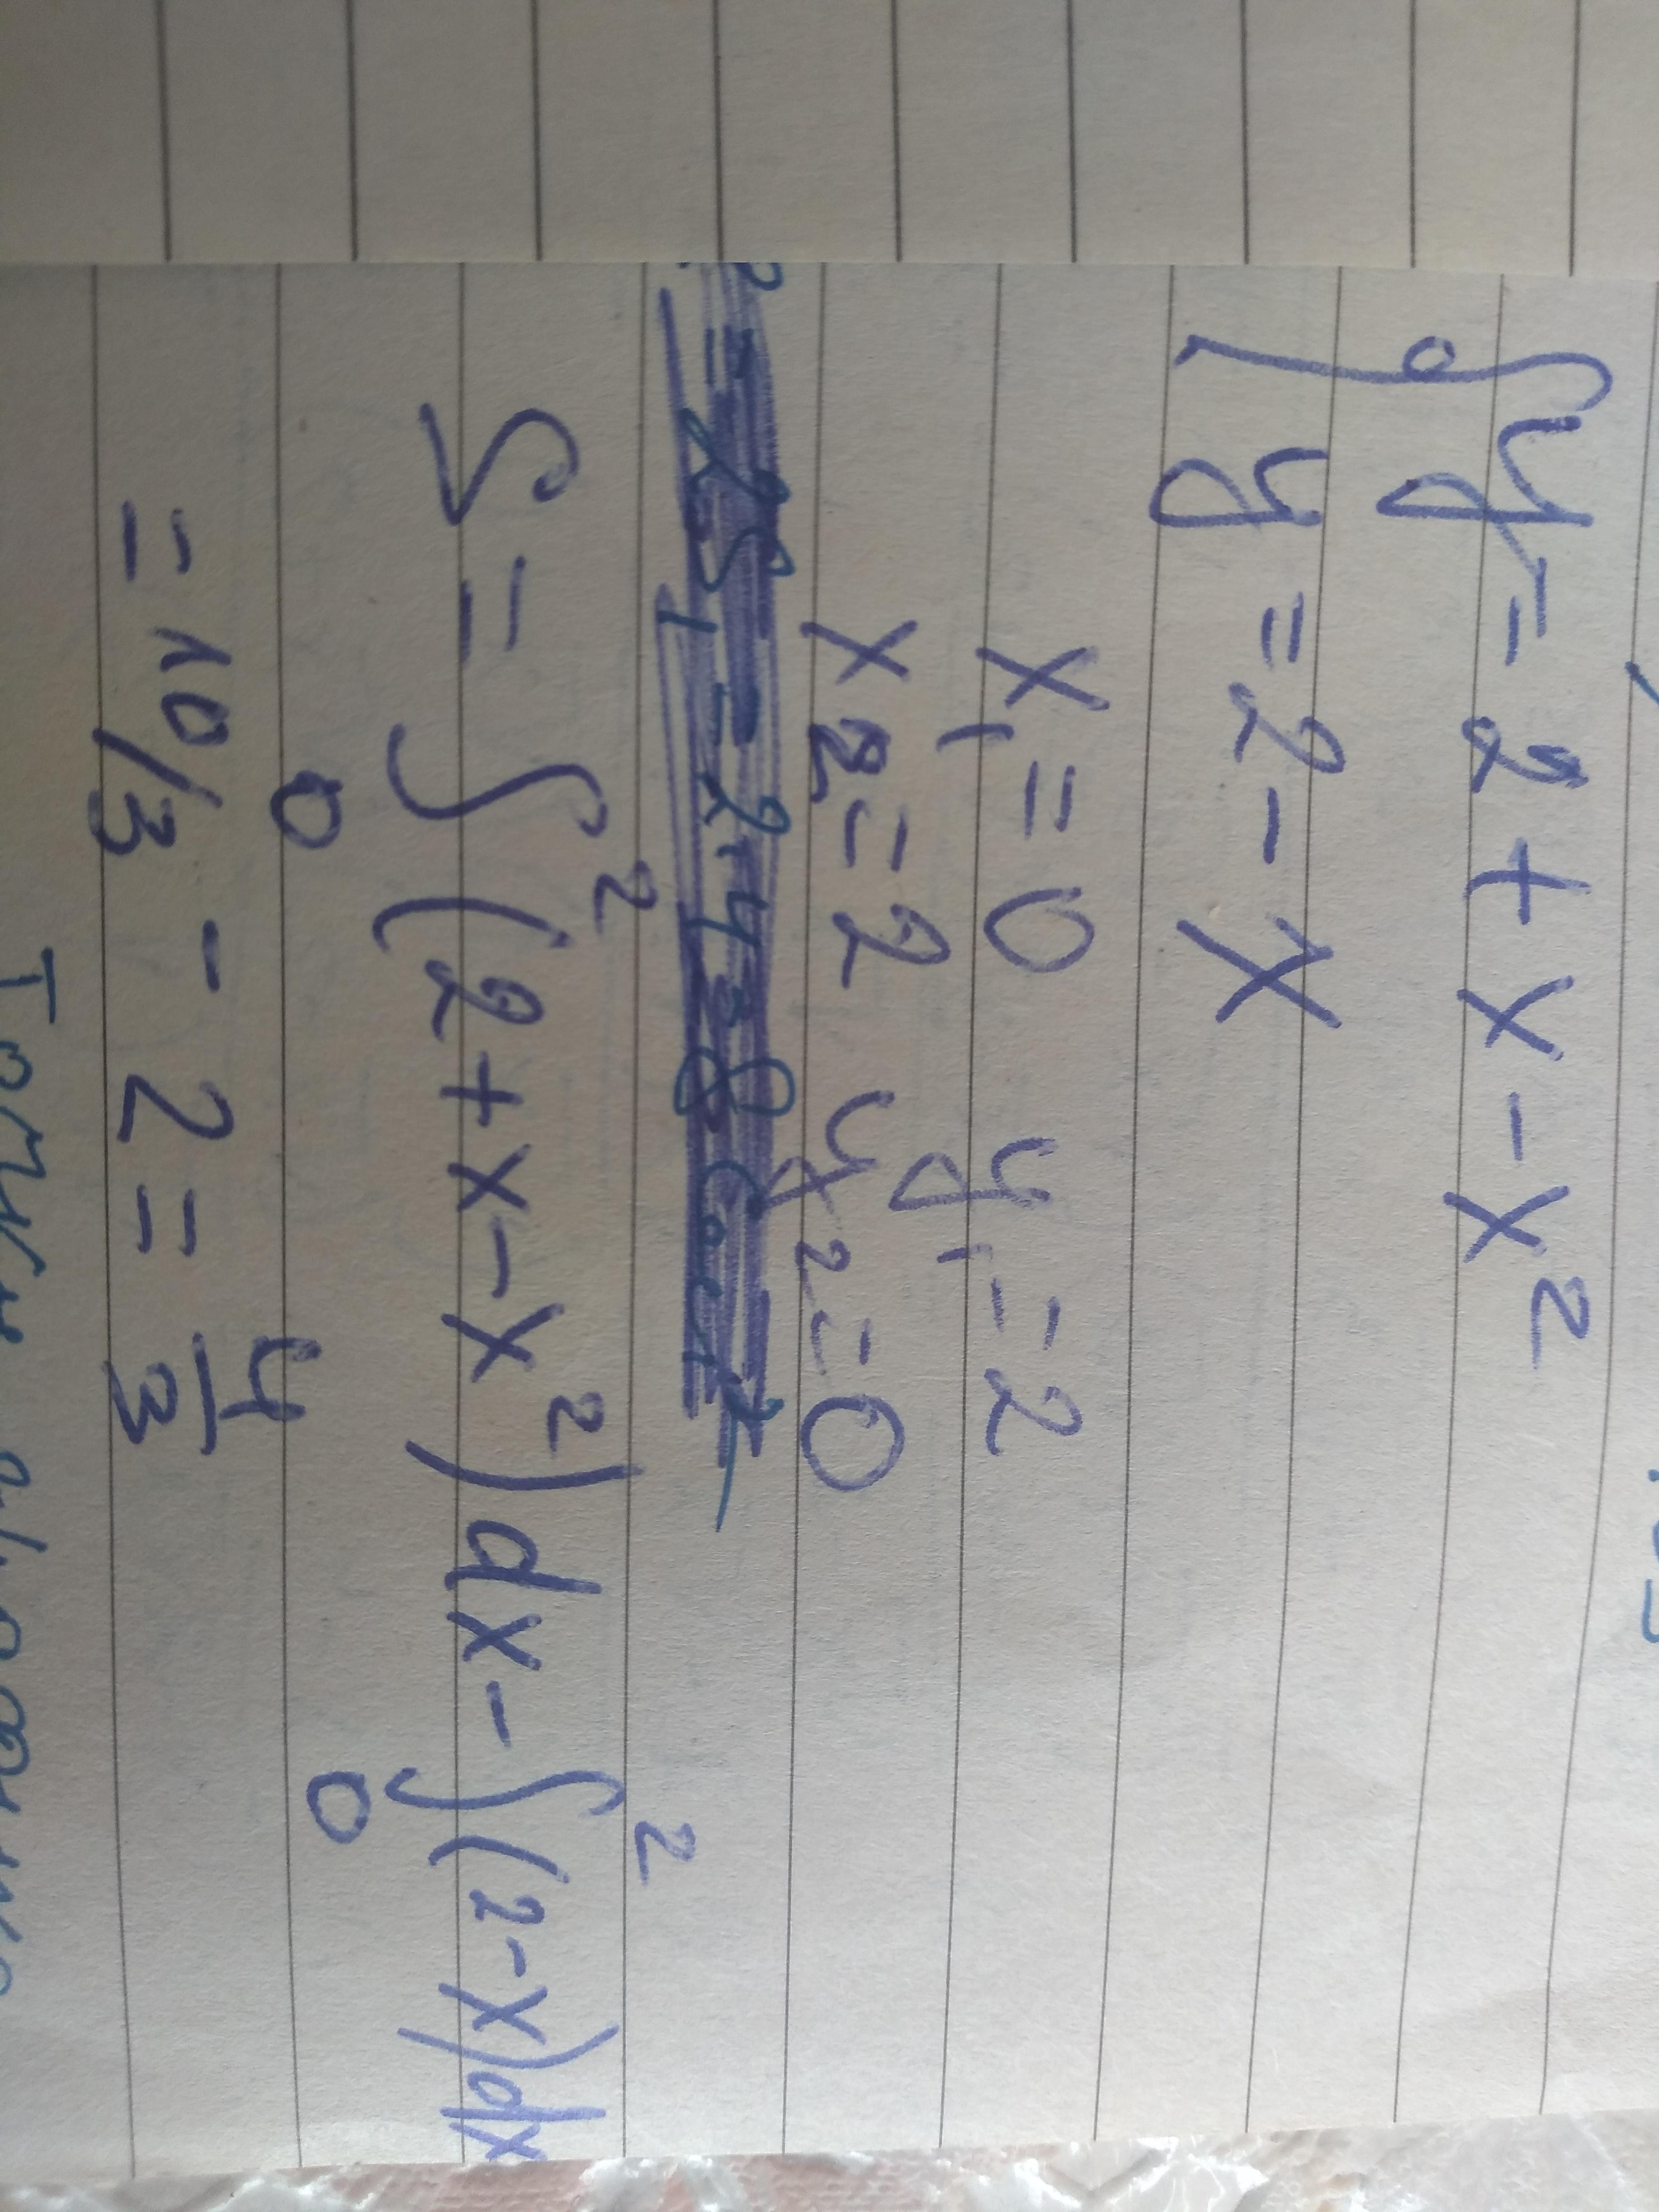 y = 2 + x - x²
y = 2 - x
x₁ = 0 y₁ = 2
x₂ = 2 y₂ = 0
S = ∫₀² (2 + x - x²) dx - ∫₀² (2 - x) dx
= 10/3 - 2 = 4/3